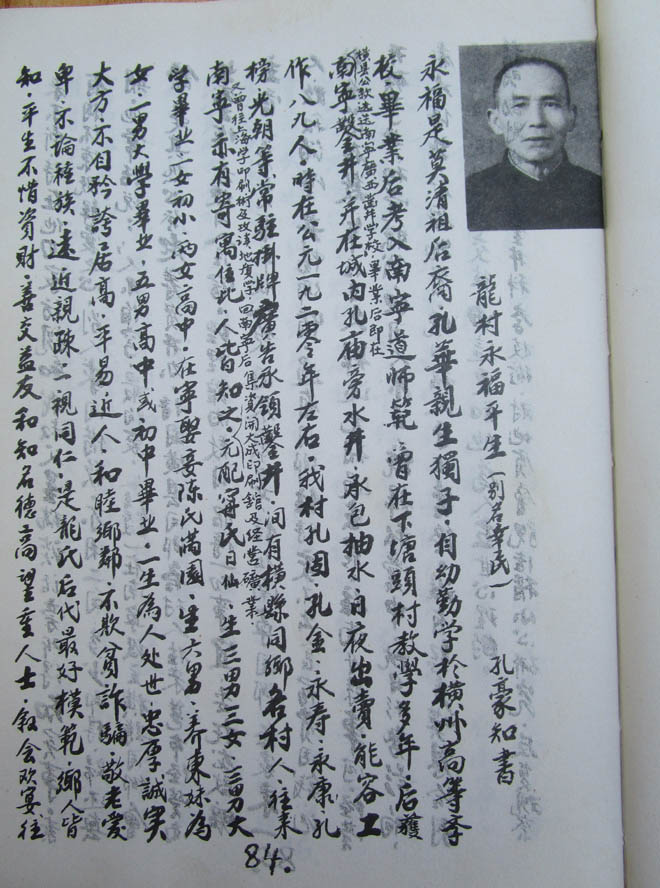 龍村永福平生(別名幸民) 孔豪知書
永福是莫清祖后裔孔華親生獨子·自幼勤学於橫州高等孝
校·畢業后考入南寧道師範·曾在下塘頭村教學多年·后獲
橫县公欵选送南寧廣西鑿井学校·畢業后即在
南寧鑿井·并在城内孔庙旁水井·承包抽水日夜出賣·能容工
作八九人·時在公元一九二零年左右·我村孔固·孔金·永寿·永康·孔
榜·光朝等·常駐掛牌廣告承領鑿井·间有橫縣同鄉各村人往来
南寧亦有寄寓住此·人皆知之·元配甯氏日仙·生三男三女·三男大
又曾往上海学印刷術及攻读地質学·回南寧后集資開大成印刷舘及经营礦業
学畢业·一女初小·两女高中·在寧娶妾陳氏滿園·生六男·养東妹為
女·一男大學畢業·五男高中或初中畢業·一生為人处世·忠厚誠实
大方·不自矜誇·居高·平易近人·和睦鄉鄰·不欺貧詐騙·敬老愛
卑·不論種族·遠近親疎·一視同仁·是龍氏后代最好模範·鄉人皆
知·平生不惜資財·善交益友和知名德高望重人士·叙会欢宴往
84.